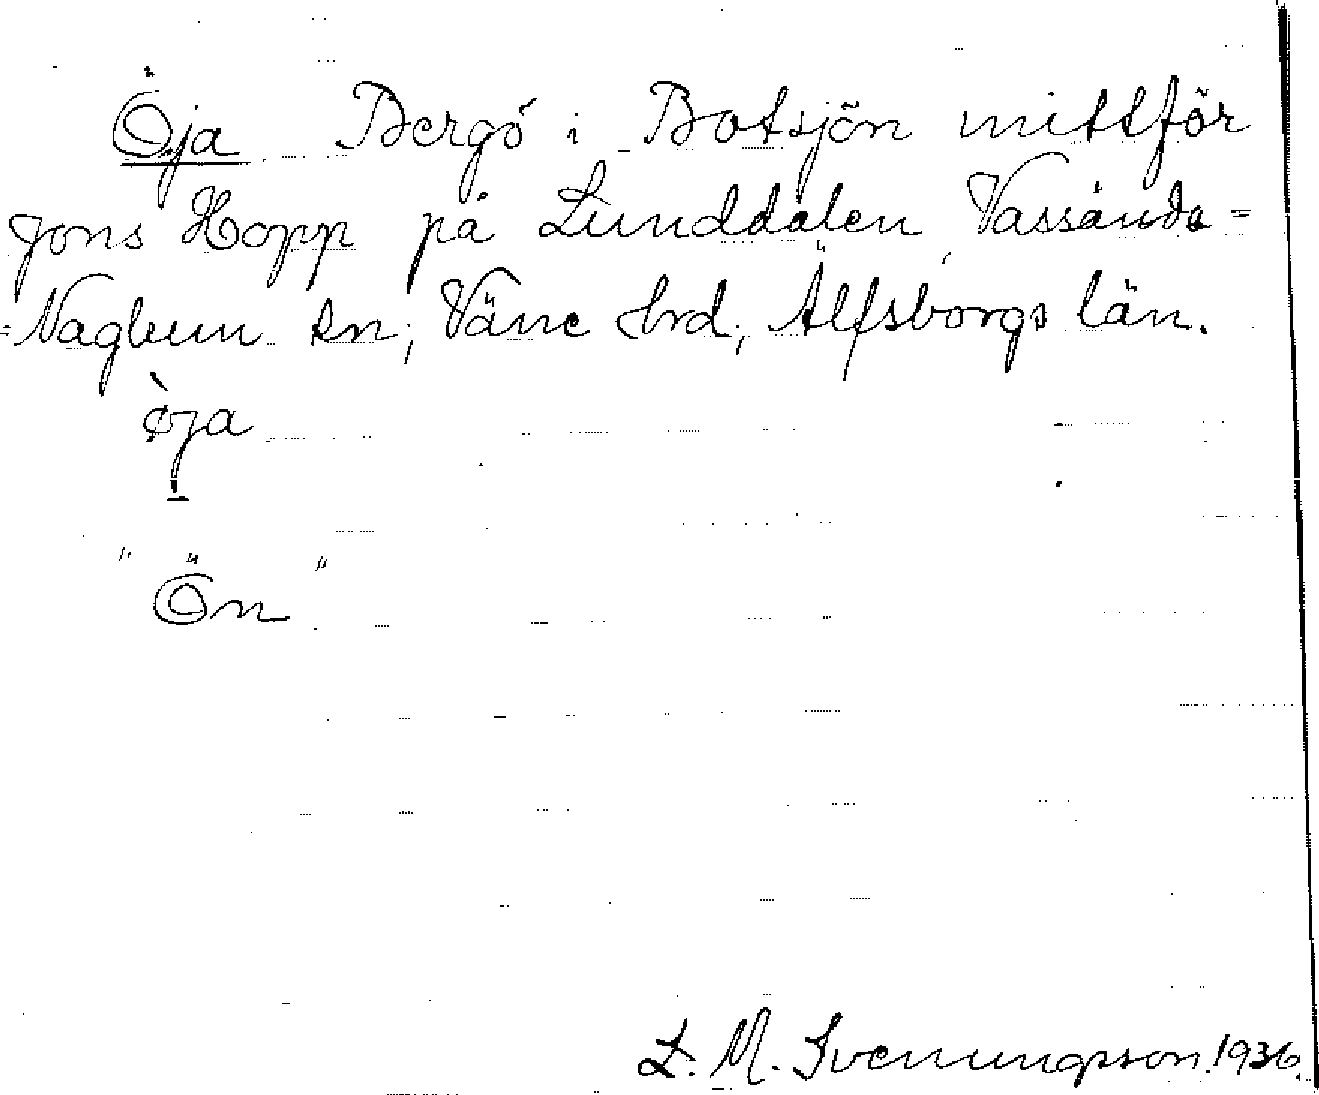 Öja Bergö i Botsjön mittför
Jons Hopp på Lunddalen, Vassända=
=Naglum sn; Väne hrd; Älfsborgs län.
ø̀ja
"Ön"
L. M. Svenungsson. 1936.